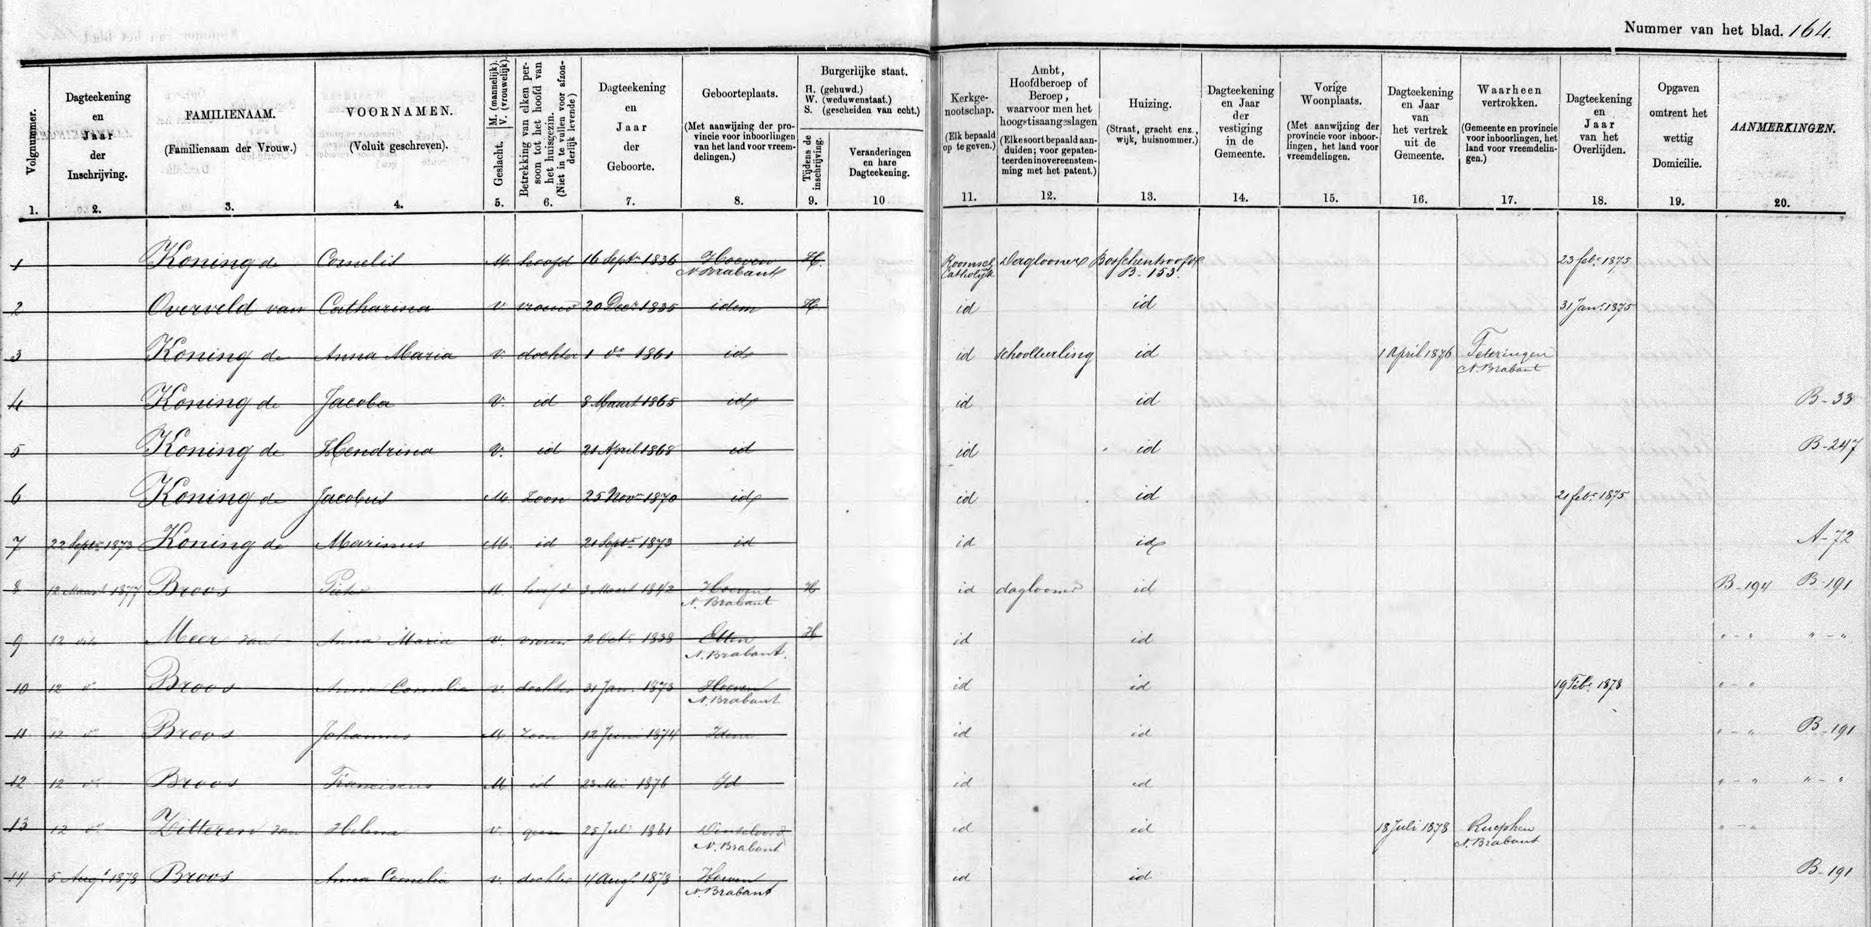 Nummer van het blad. 164.
Volgnummer.
1.
Dagteekening
en
Jaar
der
Inschrijving.
2.
FAMILIENAAM.
(Familienaam der Vrouw.)
3.
VOORNAMEN.
(Voluit geschreven).
4.
Geslacht. M. (mannelijk). V. (vrouwelijk).
5.
Betrekking van elken per-
soon tot het hoofd van
het huisgezin.
(Niet in te vullen voor afzon-
derlijk levende)
6.
Dagteekening
en
Jaar
der
Geboorte.
7.
Geboorteplaats.
(Met aanwijzing der pro-
vincie voor inboorlingen
van het land voor vreem-
delingen.)
8.
Burgerlijke staat.
H. (gehuwd.)
W. (weduwenstaat.)
S. (gescheiden van echt.)
Tijdens de
inschrijving.
9.
Veranderingen
en hare
Dagteekening.
10
Kerkge-
nootschap.
(Elk bepaald
op te geven.)
11.
Ambt,
Hoofdberoep of
Beroep,
waarvoor men het
hoogst is aangeslagen
(Elke soort bepaald aan-
duiden; voor gepaten-
teerden in overeenstem-
ming met het patent.)
12.
Huizing.
(Straat, gracht enz.,
wijk, huisnommer.)
13.
Dagteekening
en Jaar
der
vestiging
in de
Gemeente.
14.
Vorige
Woonplaats.
(Met aanwijzing der
provincie voor inboor-
lingen, het land voor
vreemdelingen.
15.
Dagteekening
en Jaar
van
het vertrek
uit de
Gemeente.
16.
Waarheen
vertrokken.
(Gemeente en provincie
voor inboorlingen, het
land voor vreemdelin-
gen.)
17.
Dagteekening
en
Jaar
van het
Overlijden.
18.
Opgaven
omtrent het
wettig
Domicilie.
19.
AANMERKINGEN.
20.
1 Koning de Cornelis M. hoofd 16 Septr 1836 Hoeven N Brabant H. Roomsch Catholijk Daglooner Bosschenhoofd B. 153. 23 febr 1875
2 Overveld van Catharina V vrouw 20 Decr 1835 idem H id id 31 Janr 1875
3 Koning de Anna Maria V. dochter 1 do 1861 id id schoolleerling id 1 April 1876 Teteringen N. Brabant
4 Koning de Jacoba V. id 8 Maart 1865 id id id B-33
5 Koning de Hendrina V. id 21 April 1868 id id id B-247
6 Koning de Jacobus M zoon 25 Novr 1870 id id id 21 febr 1875
7 22 Septr 1873 Koning de Marinus M. id 21 Septr 1873 id id id A-72
8 12 Maart 1877 Broos Pieter M hoofd 3 Maart 1842 Hoeven N. Brabant H id dagloner id B-194 B-191
9 12 do Meer van Anna Maria V. vrouw 2 Oct 1838 Etten N. Brabant. H id id " - " " - "
10 12 do Broos Anna Cornelia V. dochter 31 Jan 1873 Hoeven N. Brabant id id 19 Febr 1878 " - "
11 12 do Broos Johannes M zoon 12 1874 Idem id id " - " B-191
12 12 do Broos Franciscus M id 23 Mei 1876 Id id id " - " " - "
13 12 do van Helena V. geen 28 Juli 1861 Dinteloord N. Brabant id id 18 Juli 1878 Rucphen N. Brabant " - "
14 5 Augs 1878 Broos Anna Cornelia V. dochter 4 Augs 1878 Hoeven N. Brabant id id B-191